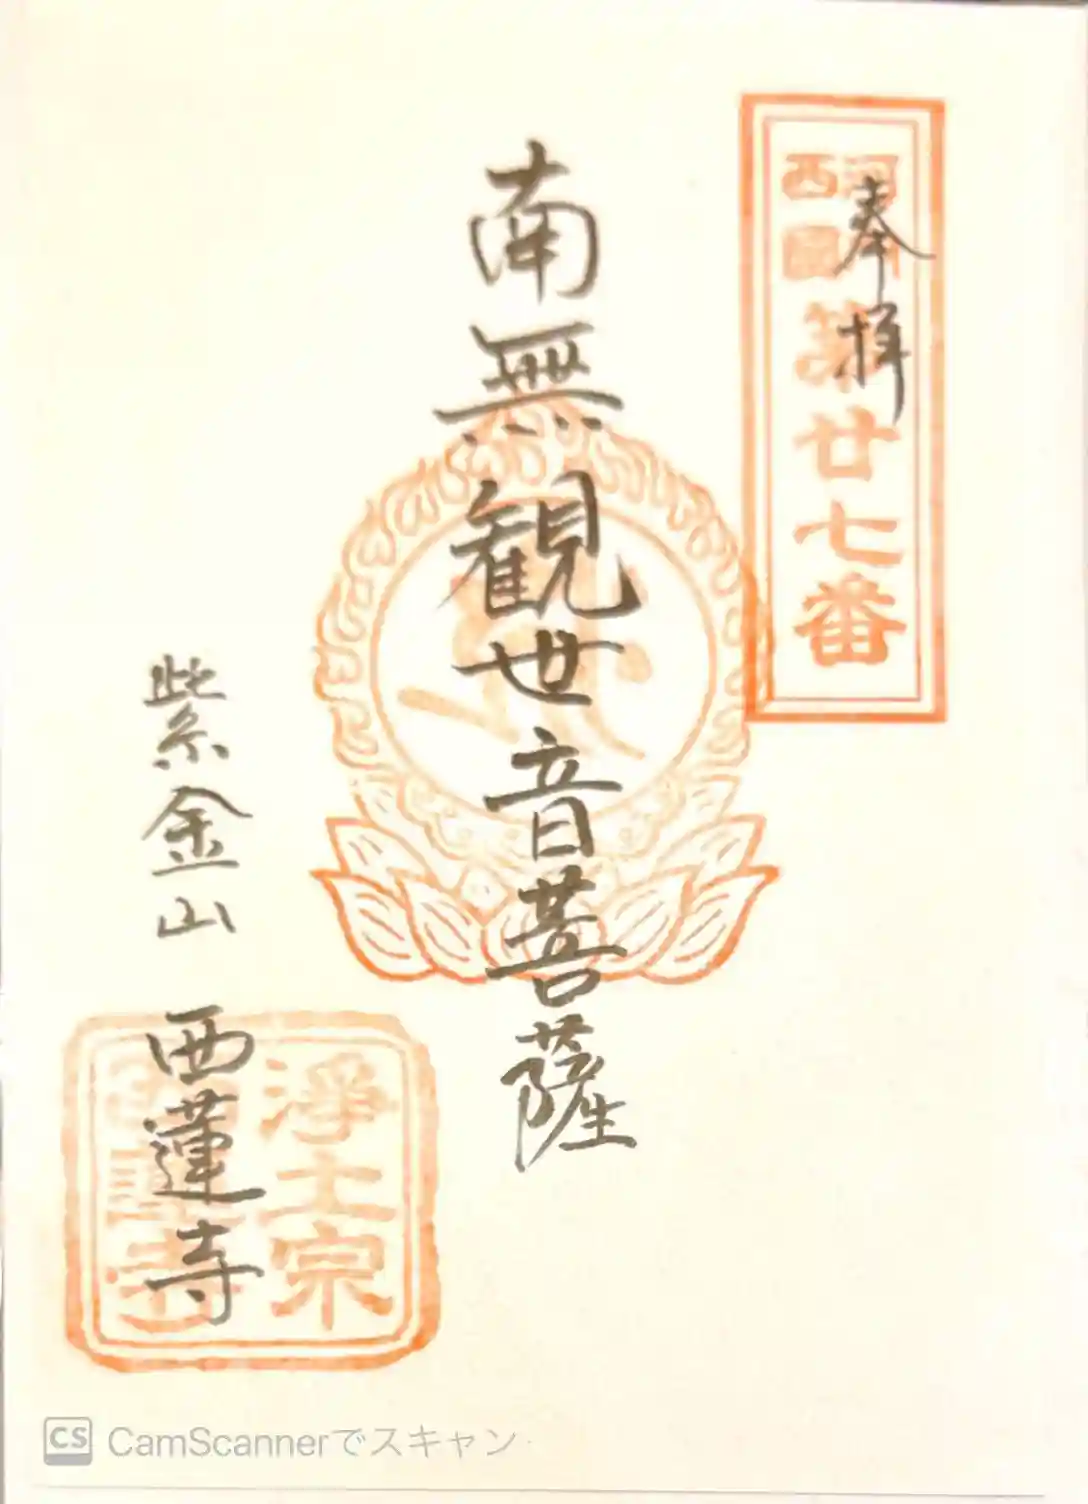 奉拝
西國
第廿七番
南無観世音菩薩
紫金山 西蓮寺
浄土宗
CS CamScannerでスキャン